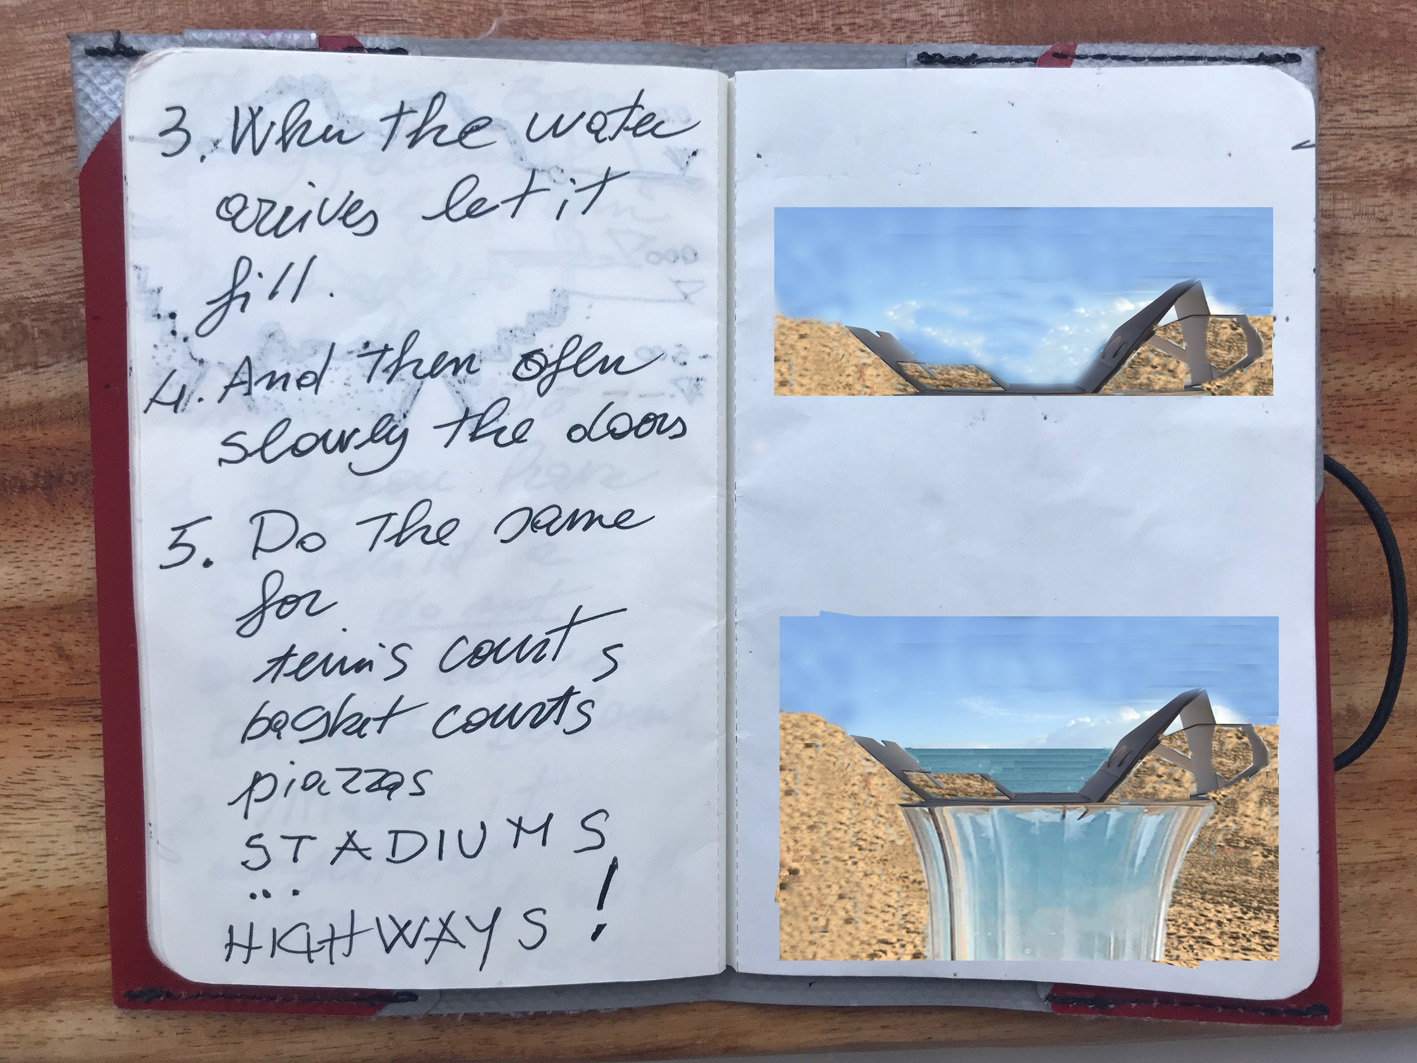 3. When the water
arrives let it
fill.
4. And then open
slowly the doors
5. Do the same
for
tennis courts
basket courts
piazzas
STADIUMS
...
HIGHWAYS!